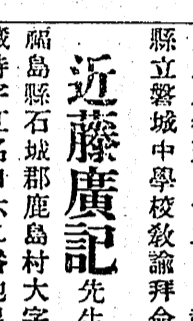 縣立磐城中學校教諭拜命
近藤廣記先生
福島縣石城郡鹿島村大字